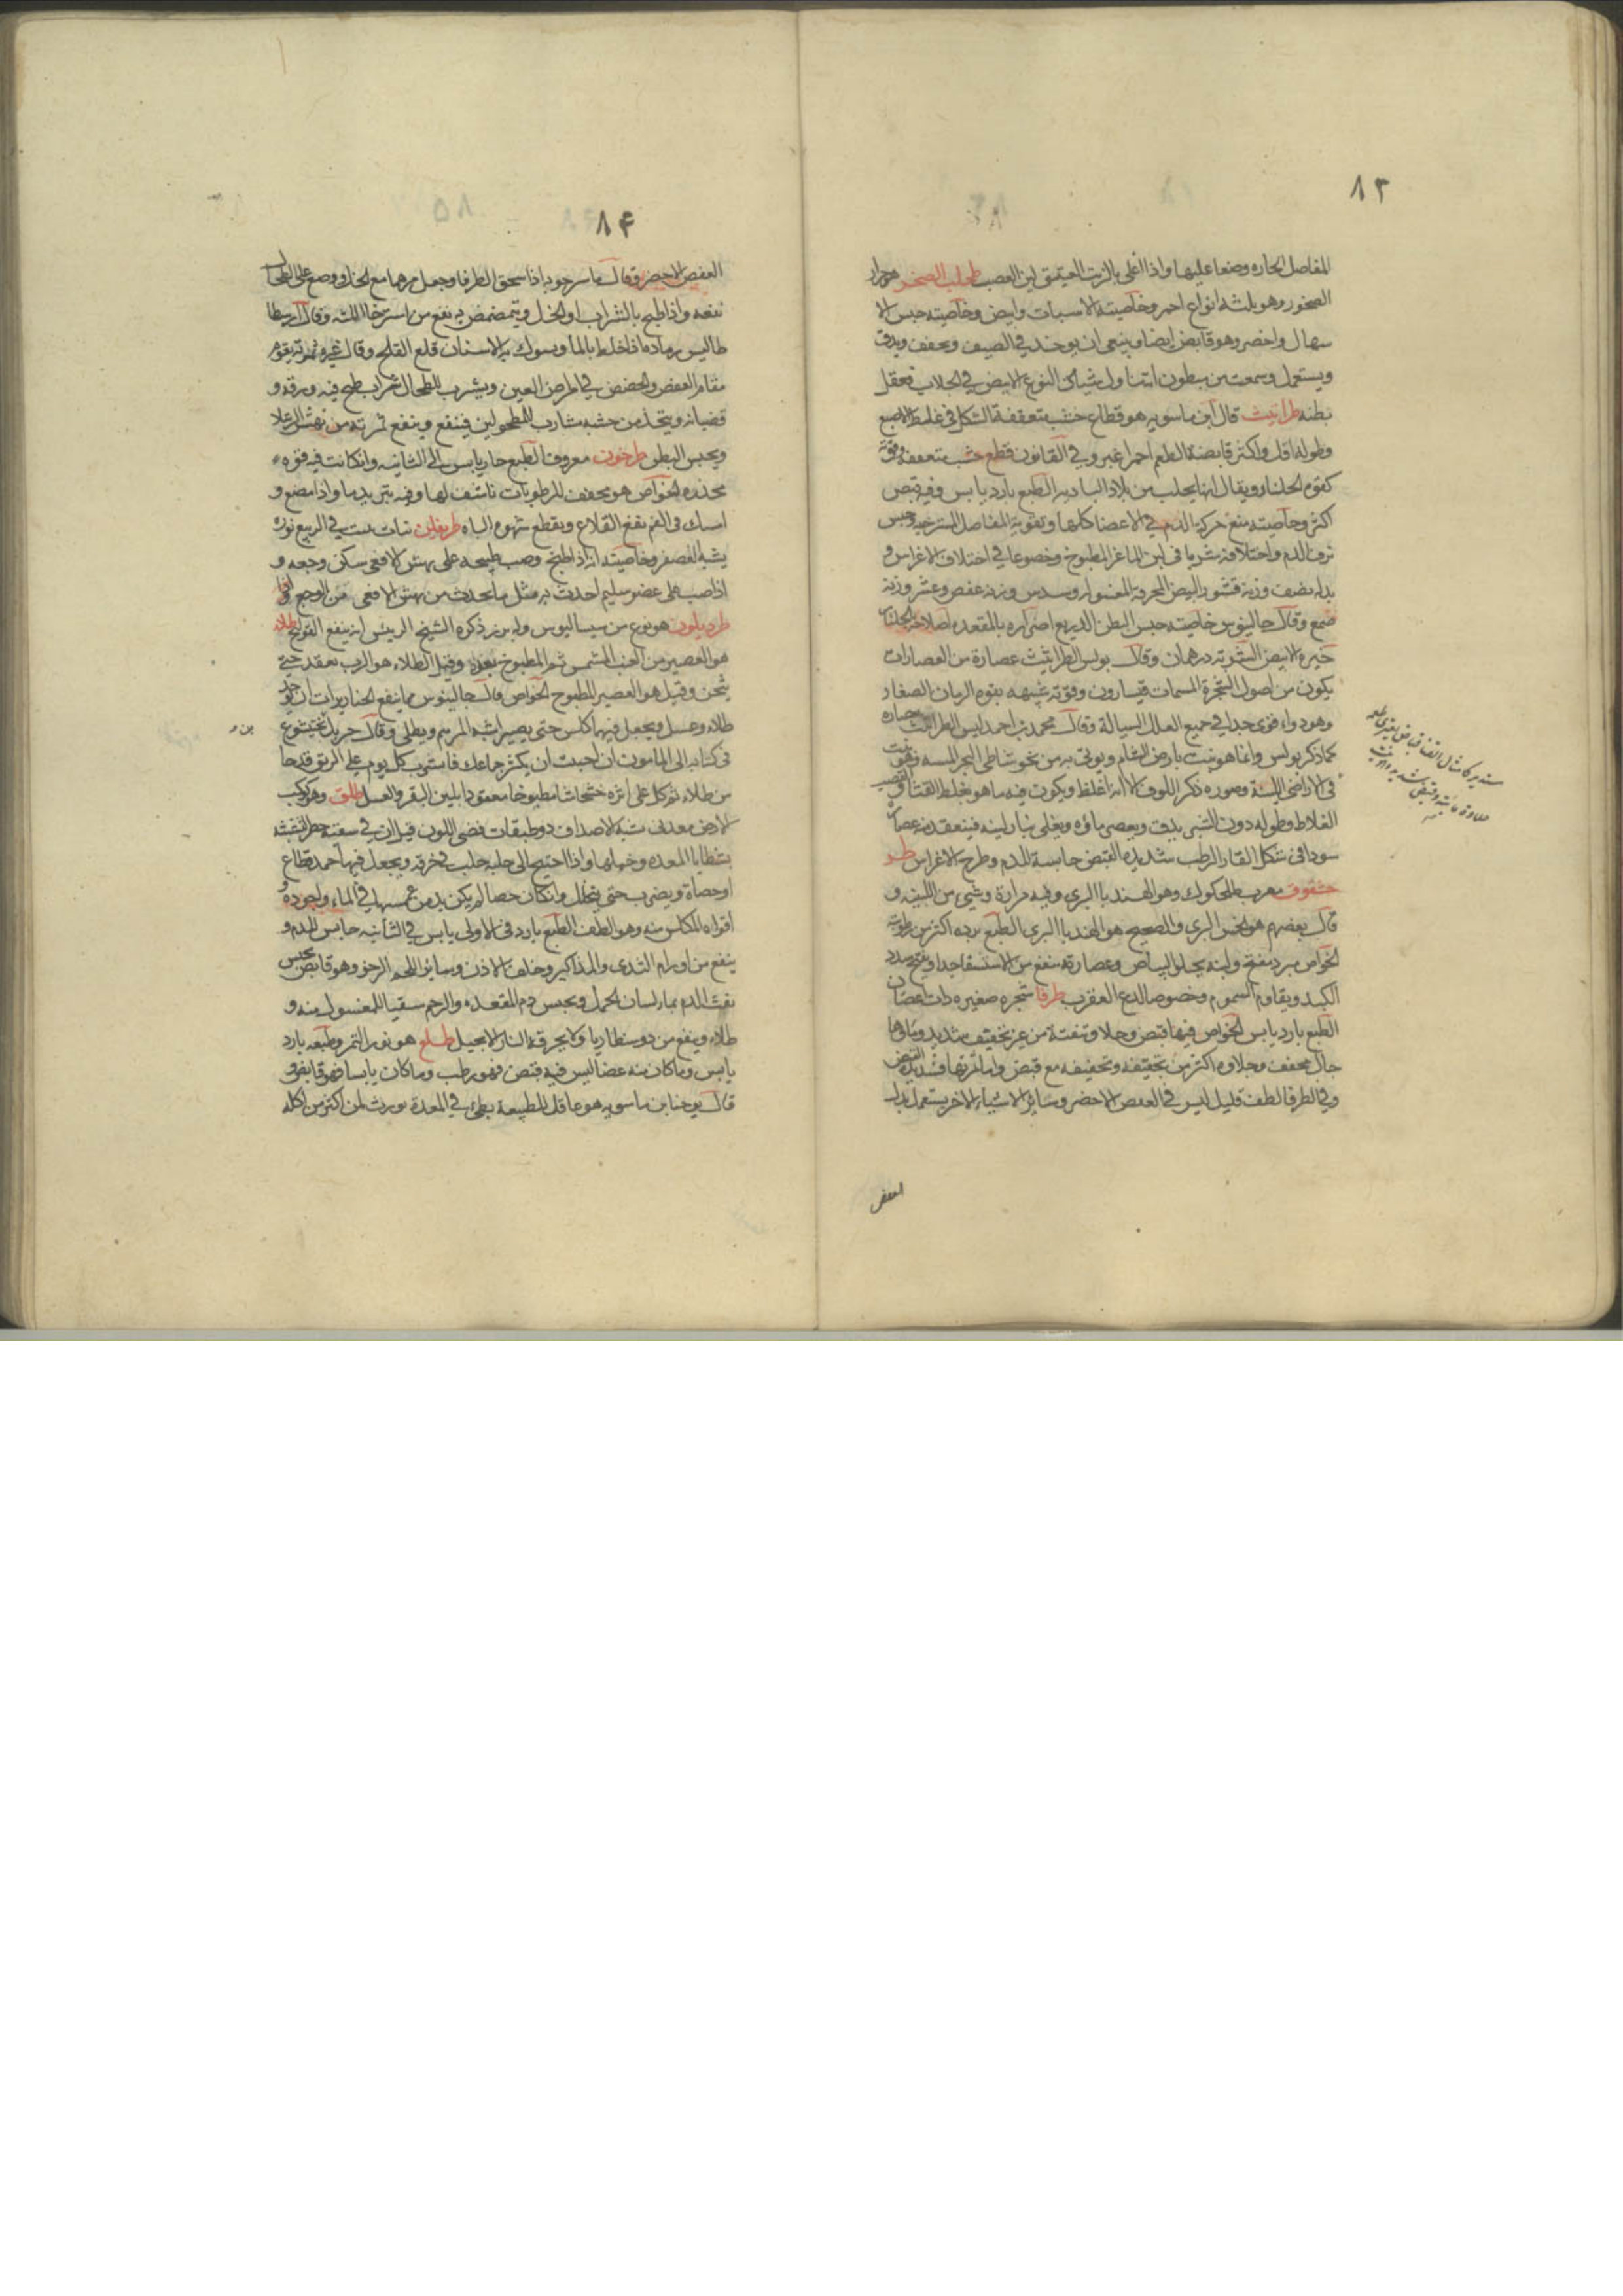 ٨٣
المفاصل الحاره وضعا عليها واذا اغلى بالزيت العتيق لين العصب طحلب الصخر هو حرار
الصخور وهو ثلثه انواع احمر وخاصيته الاسبات وابيض وخاصيته حبس الا
سهال واخضر وهو قابض ايضا وينبغى ان يوخذ في الصيف ويجفف ويدق
ويستعمل وسمعت من يتناول شيا من النوع الابيض في الجلاب فعقل
بطنه طراثيث قال ابن ماسويه هو قطاع خشب متعقفة الشكل في غلظ الاصبع
وطوله اقل واكثر قابضة الطعم احمر اغبر وفي القانون قطع خشب متعقفه وقوته
كقوه الجلنار ويقال انها يجلب من بلاد الباديه الطبع بارد يابس وفيه قبض
اكثر وخاصيته منع حركة الدم في الاعضا كلها وتقوية المفاصل المسترخيه وحبس
نزف الدم واختلافه شربا في لبن الماعز المطبوخ وخصوصا في اختلاف الاغراس و
بدله نصف وزنه قشور البيض المحرقة المغسوله وسدس وزنه عفص وعشر وزنه
صمغ وقال جالينوس خاصيته حبس البطن الذريع اضراره بالمقعده اصلاحه الجلنار
خيره الابيض الشربته درهمان وقال بولس الطراثيث عصارة من العصارات
يكون من اصول الشجرة المسمات قيسارون وقوته شبيهه بقوه الرمان الصغار
وهو دواء قوى جدا في جميع العلل السيالة وقال محمد بن احمد ليس الطراثيث عصاره
كما ذكر بولس وانما هو نبت بارض الشام ويوتى به من نحو شاطى البحر
في الاراضى اللينة وصوره ذكر اللوف الا انه اغلظ ويكون فيه ما هو بغلظ القثا والقصب
الغلاظ وطوله دون الشبر يدق ويعصر ماؤه ويغلى بنار لينه فينعقد منه عصاره
سودا في شكل القار الرطب شديده القبض حابسة للدم وطرح الاغراس طر
حشقوق معرب طلحكوك وهو الهندبا البرى وفيه مرارة وشى من اللبنيه و
قال بعضهم هو الخس البرى والصحيح هو الهندبا البرى الطبع برده اكثر من رطوبته
الخواص مبرد مفتح ولبنه يجلو البياض وعصارته ينفع من الاستسقا جدا ويفتح سدد
الكبد ويقاوم السموم وخصوصا لدغ العقرب طرفا شجره صغيره ذات اغصان
الطبع بارد يابس الخواص فيها قبض وجلا وتنقية من غير تجفيف شديد وماؤها
جال مجفف وجلاؤه اكثر من تجفيفه وتجفيفه مع قبض واما ثمرتها فشديدة القبض
وفي الطرفا لطف قليل ليس في العفص الاخضر وسائر الاشياء الاخر يستعمل بدل
العفص
٨٤
العفص الاخضر وقال ماسرجويه اذا سحق الطرفا وجعل مرهما مع الخل ووضع على الطحال
نفعه واذا طبخ بالشراب او الخل ويتمضمض به نفع من استرخا اللثه وقال ارسطا
طاليس رماده اذا خلط بالماء وسوك به الاسنان قلع القلح وقال غيره ثمرته يقوم
مقام العفص والحضض في امراض العين ويشرب للطحال شراب طبخ فيه ورقه و
قضبانه ويتخذ من خشبه مشارب للمطحولين فينتفع وينفع ثمرته من نهش الرتيلا
ويحبس البطن طرخون معروف الطبع حار يابس الى الثانيه وان كانت فيه قوه
مخدره الخواص هو مجفف للرطوبات ناشف لها وفيه تبريد ما واذا مضغ و
امسك في الفم نفع القلاع ويقطع شهوه الباه طريفلن نبات ينبت في الربيع نوره
يشبه العصفر وخاصيته انه اذا طبخ وصب طبيخه على نهش الافعى سكن وجعه و
اذا صب على عضو سليم احدث به مثل ما يحدث من نهش الافعى من الوجع
طرديلون هو نوع من سيساليوس وله بزر ذكره الشيخ الرئيس انه ينفع القولنج طلاء
هو العصير من العنب المشمس ثم المطبوخ بعده وقيل الطلاء هو الرب بعقد حتى
يثخن وقيل هو العصير المطبوخ الخواص قال جالينوس مما ينفع الخنازيرات ان يؤخذ
طلاء وعسل ويجعل فيهما كلس حتى يصير شبه المرهم ويطلى وقال جبريل بن بختيشوع
في كتابه الى المامون ان احببت ان يكثر جماعك فاشرب كل يوم على الريق قدحا
من طلاء ثم كل على اثره مطبوخا معقودا بلبن البقر والعسل طلق وهو كوكب
الارض معدنى شبه الاصداف ذو طبقات فضى اللون قيل ان في سقيه خطر لتشبثه
بشظايا المعده وخملها واذا احتيج الى حلبه حلب في خرقة ويجعل فيها جمد قطاع
او حصاة ويضرب حتى ينحلل وان كان حصا لم يكن بد من غمسها في الماء واجوده و
اقواه المكلس منه وهو الطف الطبع بارد في الاولى يابس في الثانيه حابس للدم و
ينفع من اورام الثدى والمذاكير وخلف الاذن وسائر اللحم الرخو وهو قابض يحبس
نفث الدم بماء لسان الحمل ويحبس دم المقعده والرحم سقيا للمغسول منه و
طلاء وينفع من دوسنطاريا ولا يحرقه النار الا بحيل طلع هو نور التمر وطبعه بارد
يابس وما كان منه غضا ليس فيه قبض فهو رطب وما كان يابسا فهو قابض وقد
قال يوحنا بن ماسويه هو عاقل للطبيعة بطئ في المعدة يورث لمن اكثر من اكله